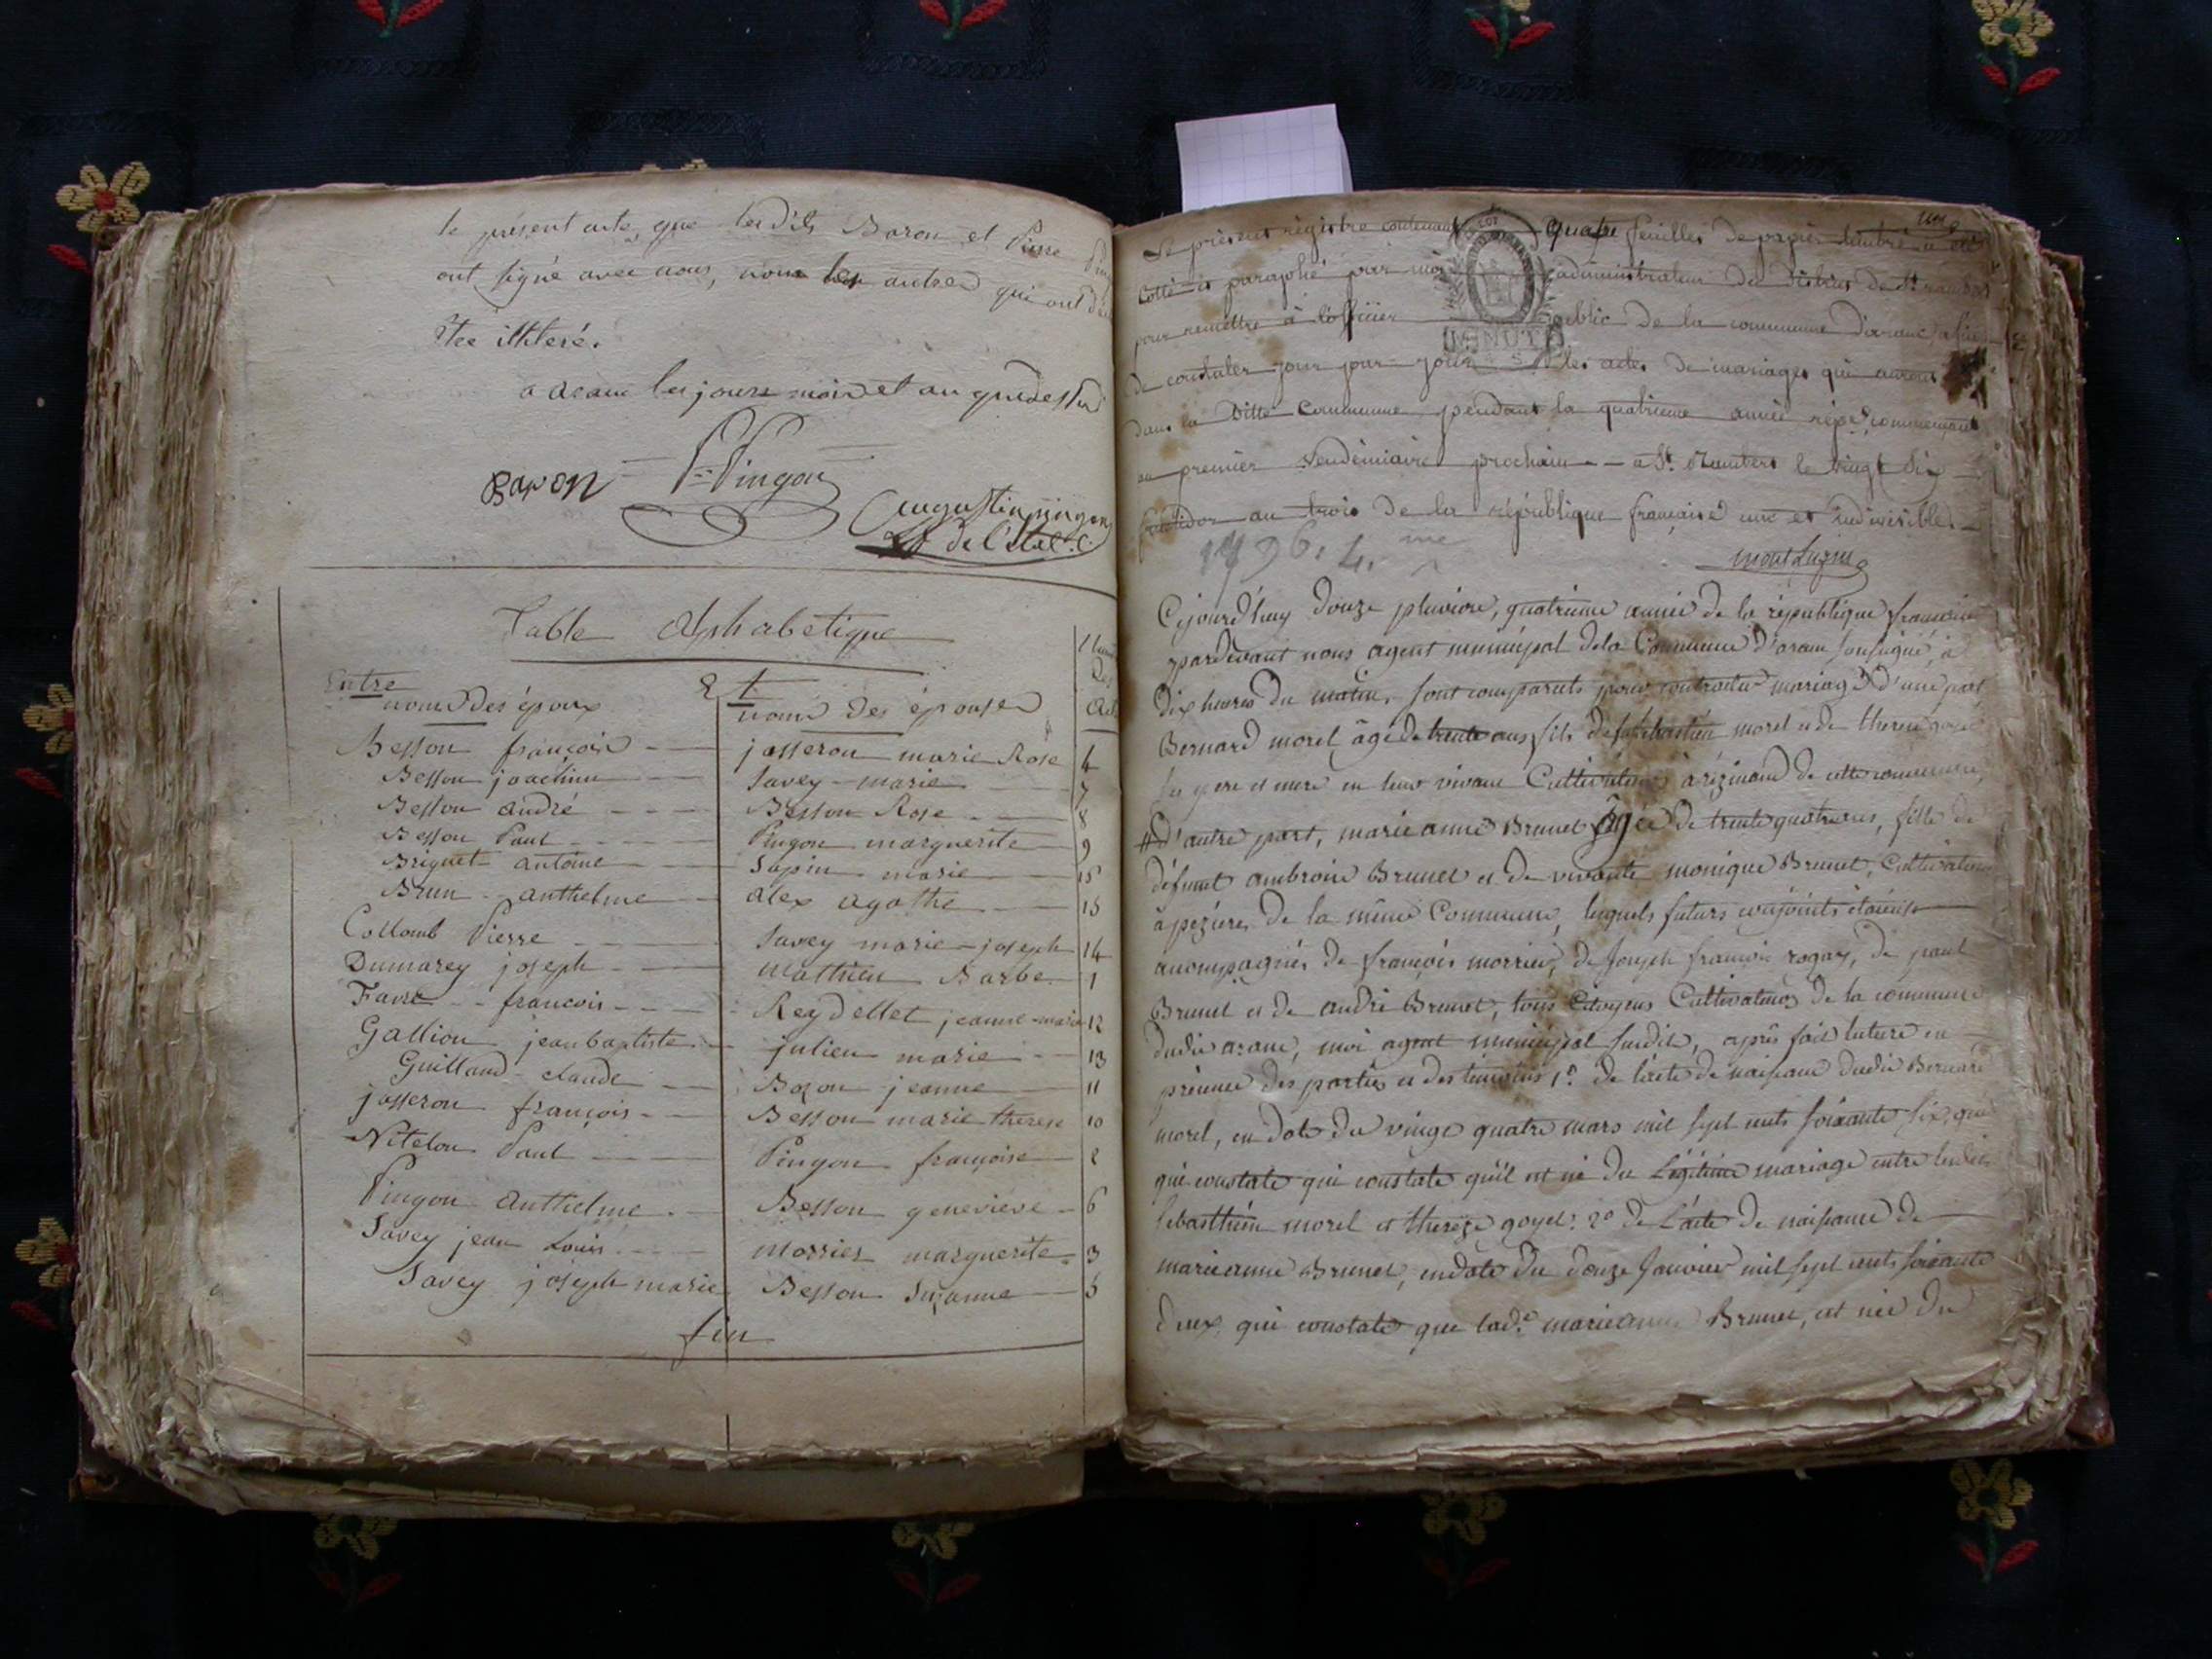 le présent acte, que les dits Baron et Pierre
ont signé avec nous, non les autres qui ont
être illiteré.
a aranc les jours mois et an que dessus
Baron P. Pingon
augustin pingon
de l'état c.
Table Alphabetique
Entre Et
noms des époux noms des épouses
Besson françois josseron marie Rose 4
Besson joachim Savey marie 7
Besson andré Besson Rose 8
Besson Paul Pingon marguerite 9
Briquet antoine Sapin marie 15
Brun anthelme alex agathe 15
Collomb Pierre Savey marie joseph 14
Dumarey joseph Mathieu Barbe 1
Favre françois Reydellet jeanne marie 12
Gallion jean baptiste julien marie 13
Guilland claude Bozon jeanne 11
josseron françois Besson marie therese 10
Nitelon Paul Pingon françoise 2
Pingon anthelme Besson genevieve 6
Savey jean Louis Morrier marguerite 3
Savey joseph marie Besson Suzanne 5
fin
Le présent régistre contenant quatre feuilles de papier timbré a été
cotté et paraphé par moi administrateur du district de St rambert
pour remettre à l'officier public de la commune d'aranc afin
de constater jour par jour les actes de mariages qui auront
MINUTE
dans la ditte commune pendant la quatrieme année rép.e commençant
au premier vendémiaire prochain a St. Rambert le vingt six
fructidor an trois de la république française une et indivisible.
1796. 4.me
montLuzin
Cejourd'huy douze pluviose, quatrieme année de la république française
pardevant nous agent municipal de la Commune d'aranc soussigné, à
dix heures du matin, sont comparuts pour contracter mariage d'une part
Bernard morel âgé de trente ans fils de feu sébastien morel et de therese goyet
ses pere et mere en leur vivant Cultivateurs à rézinand de cette commune,
d'autre part, marie anne Brunet âgée de trente quatre ans, fille de
défunt ambroise Brunet et de vivante monique Brunet, Cultivateurs
à pezieres de la même Commune, lesquels futurs conjoints étaient
accompagnés de françois morrier, de Joseph françois rogary, de paul
Brunet et de andré Brunet, tous Citoyens Cultivateurs de la commune
dudit aranc, moi agent municipal susdit, après fait lecture en
présence des parties et des temoins 1.° de l'acte de naissance dudit Bernard
morel, en date du vingt quatre mars mil sept cents soixante six, qui
qui constate qui constate qu'il est né du Légitime mariage entre lesdits
sebasthien morel et thereze goyet. 2° de L'acte de naissance de
marie anne Brunet, en date du douze Janvier mil sept cents soixante
deux, qui constate que lad.e marie anne Brunet, est née du